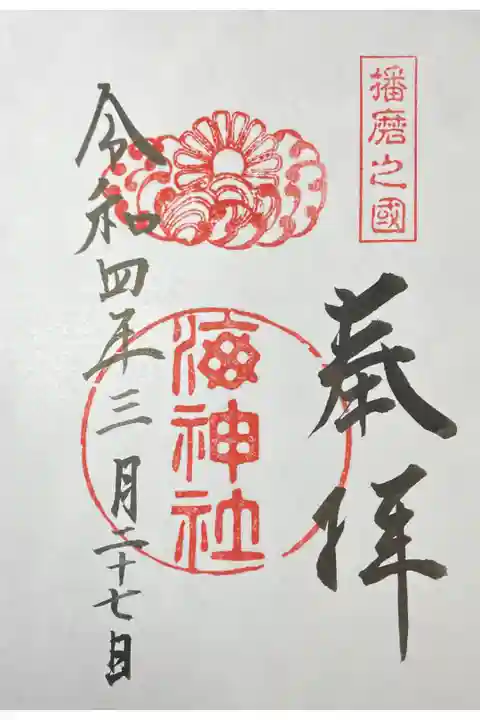 播磨之國
奉拝
海神社
令和四年三月二十七日